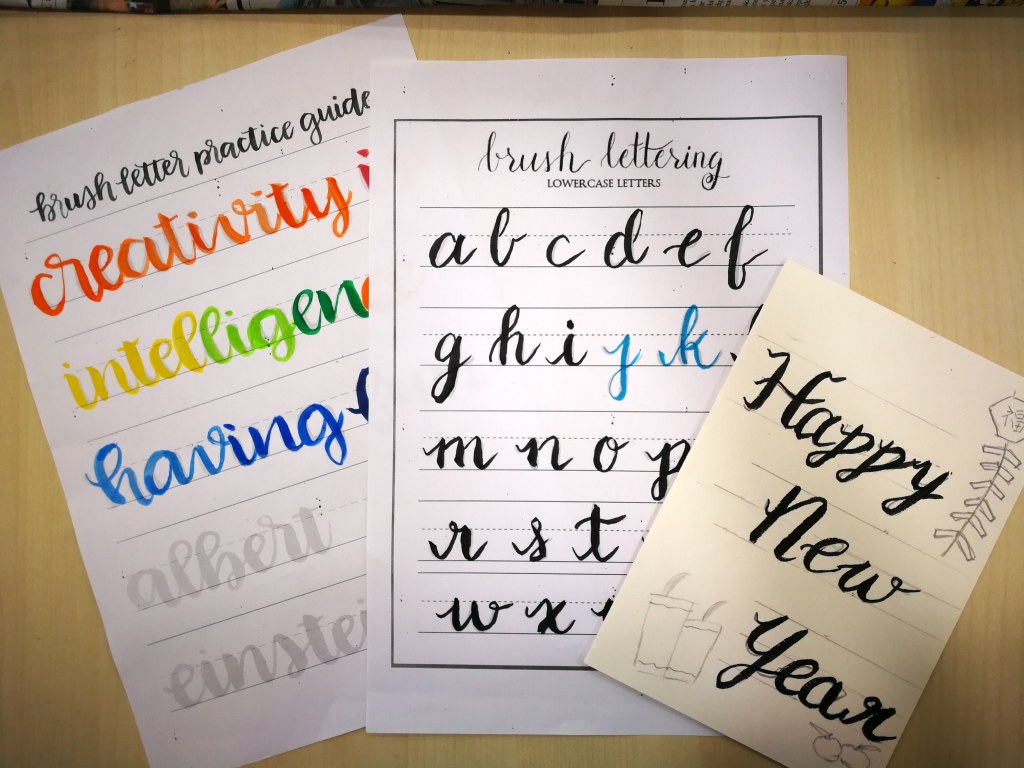 brush letter practice guide
creativity i
intelligen
having
albert
einstei
brush lettering
LOWERCASE LETTERS
a b c d e f
g h i j k
m n o p
r s t
w x
Happy
New
Year
福